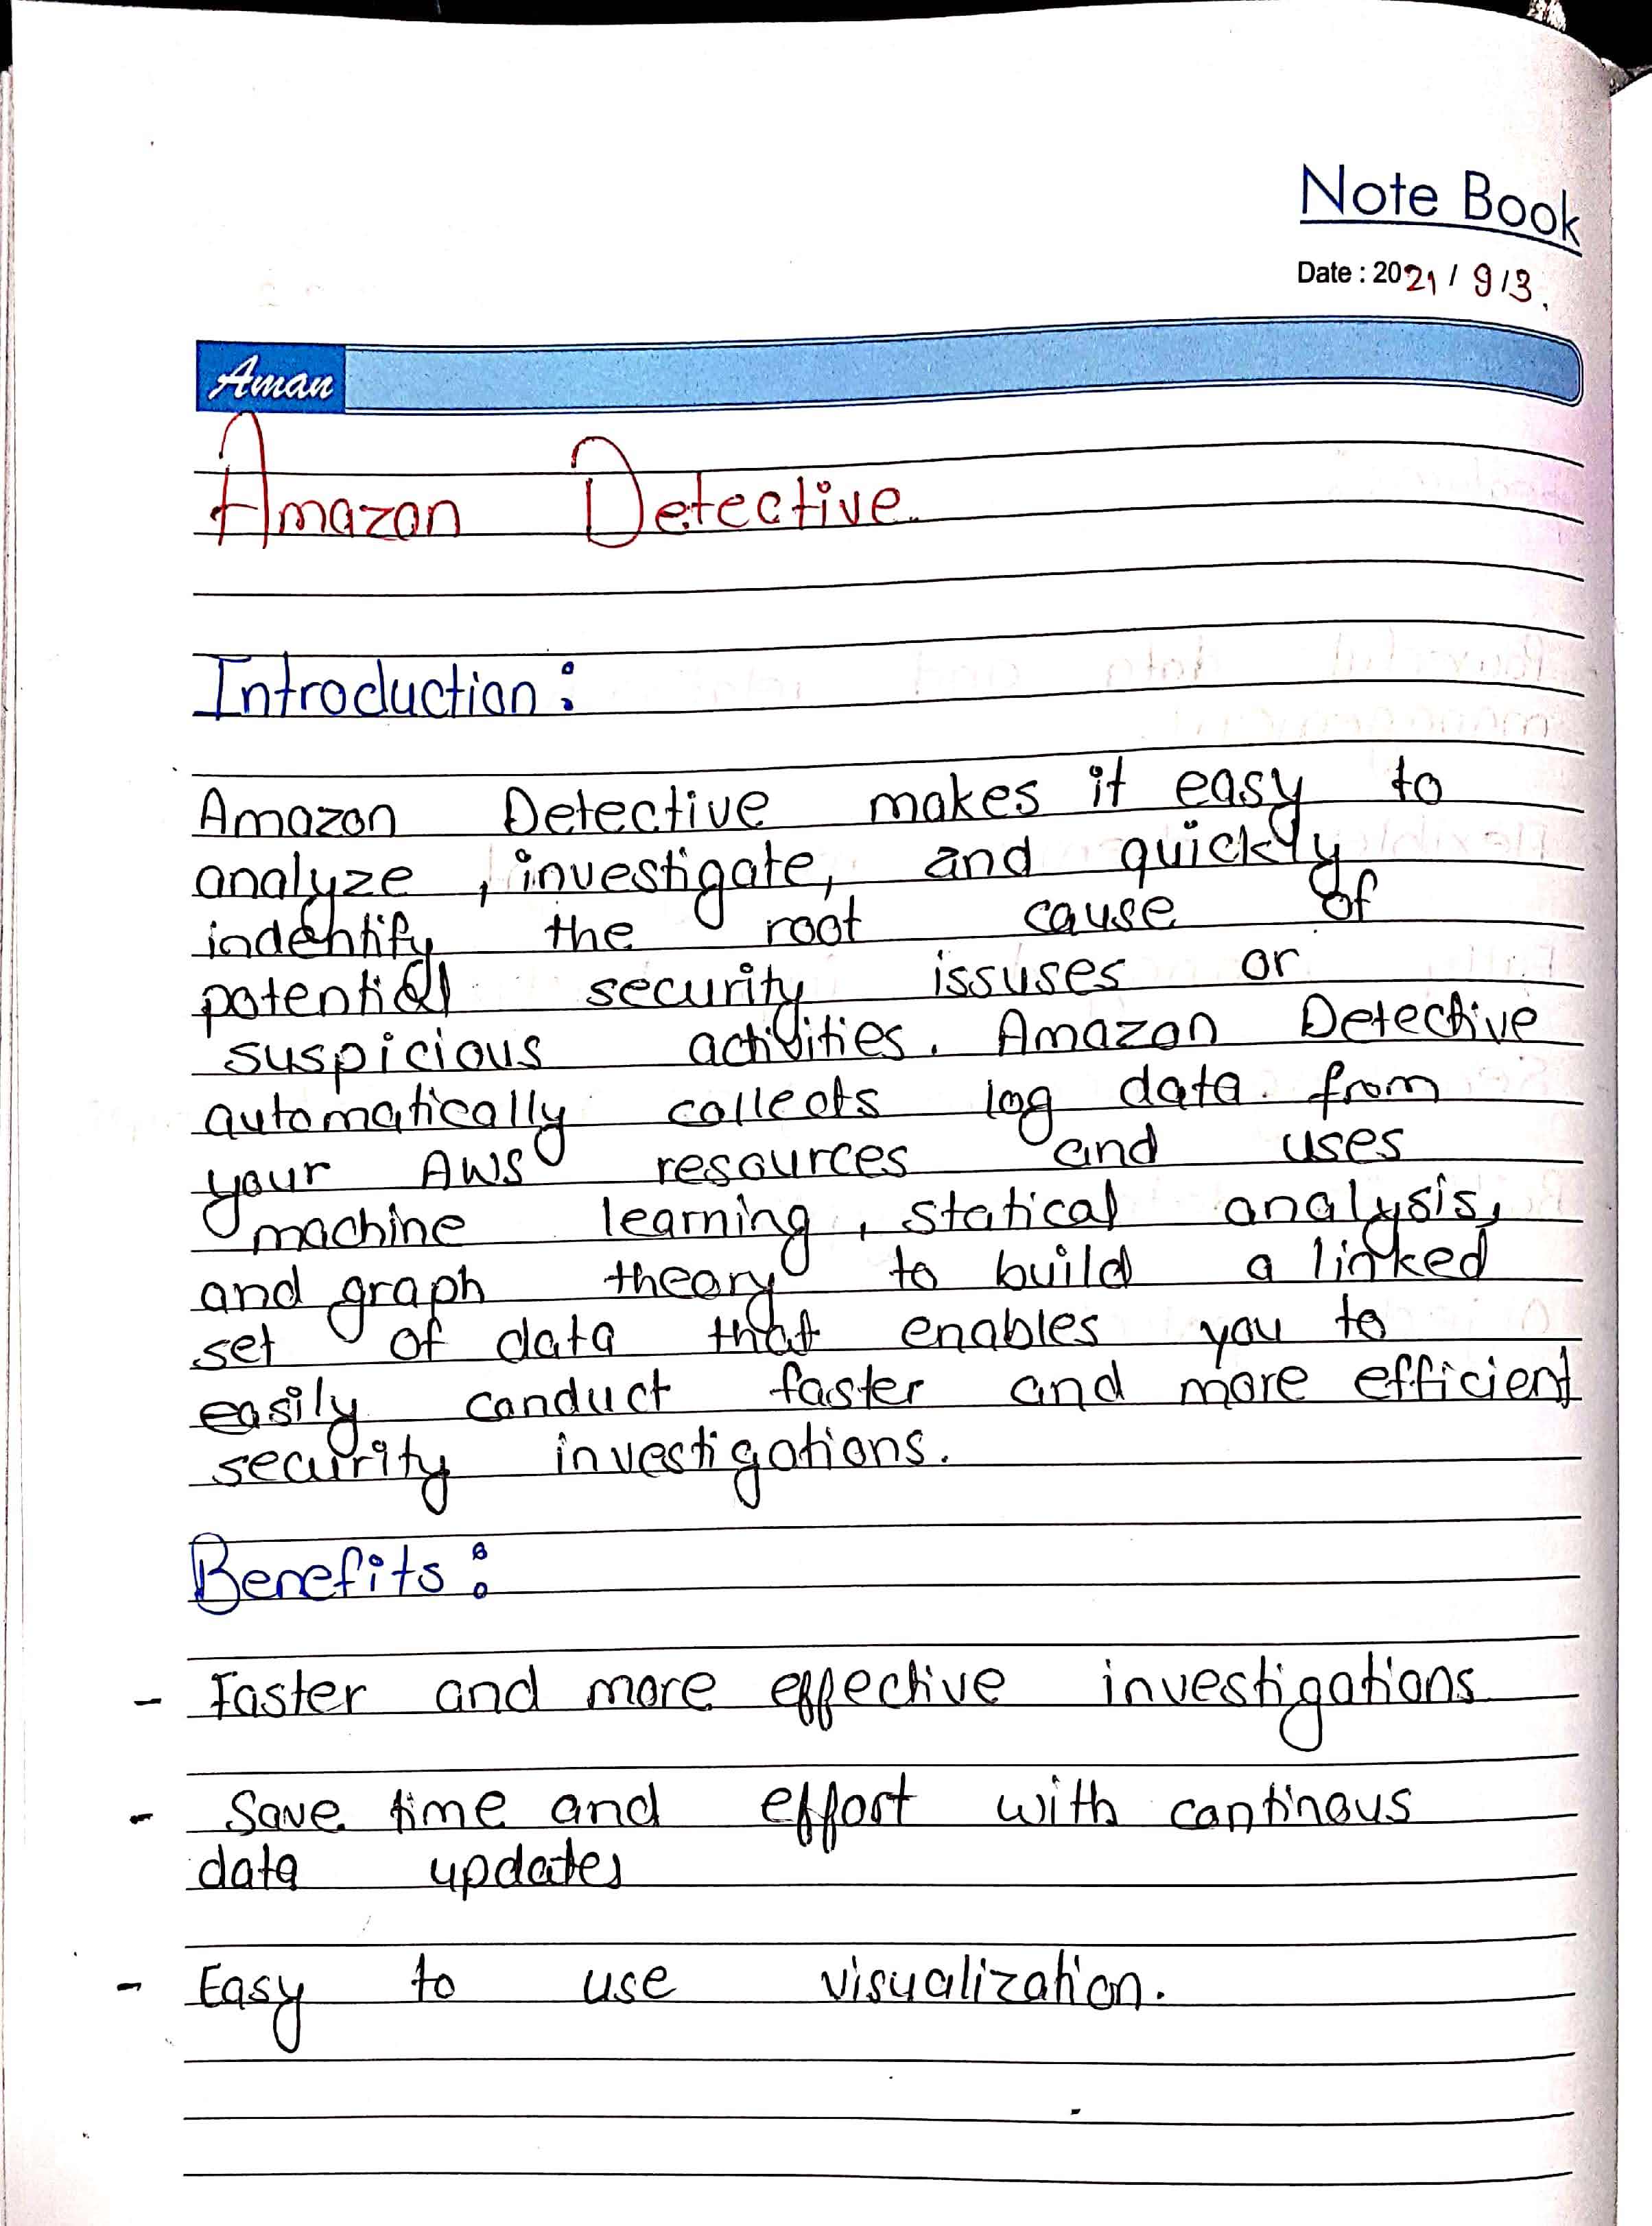 Note Book
Date : 2021 / 9/3.
Aman
Amazon Detective.
Introduction:
Amazon Detective makes it easy to
analyze, investigate, and quickly
indentify the root cause of
potential security issuses or
suspicious activities. Amazon Detective
automatically collects log data from
your AWS resources and uses
machine learning, statical analysis,
and graph theory to build a linked
set of data that enables you to
easily conduct faster and more efficient
security investigations.
Benefits:
- Faster and more effective investigations
- Save time and effort with continous
data updates
- Easy to use visualization.